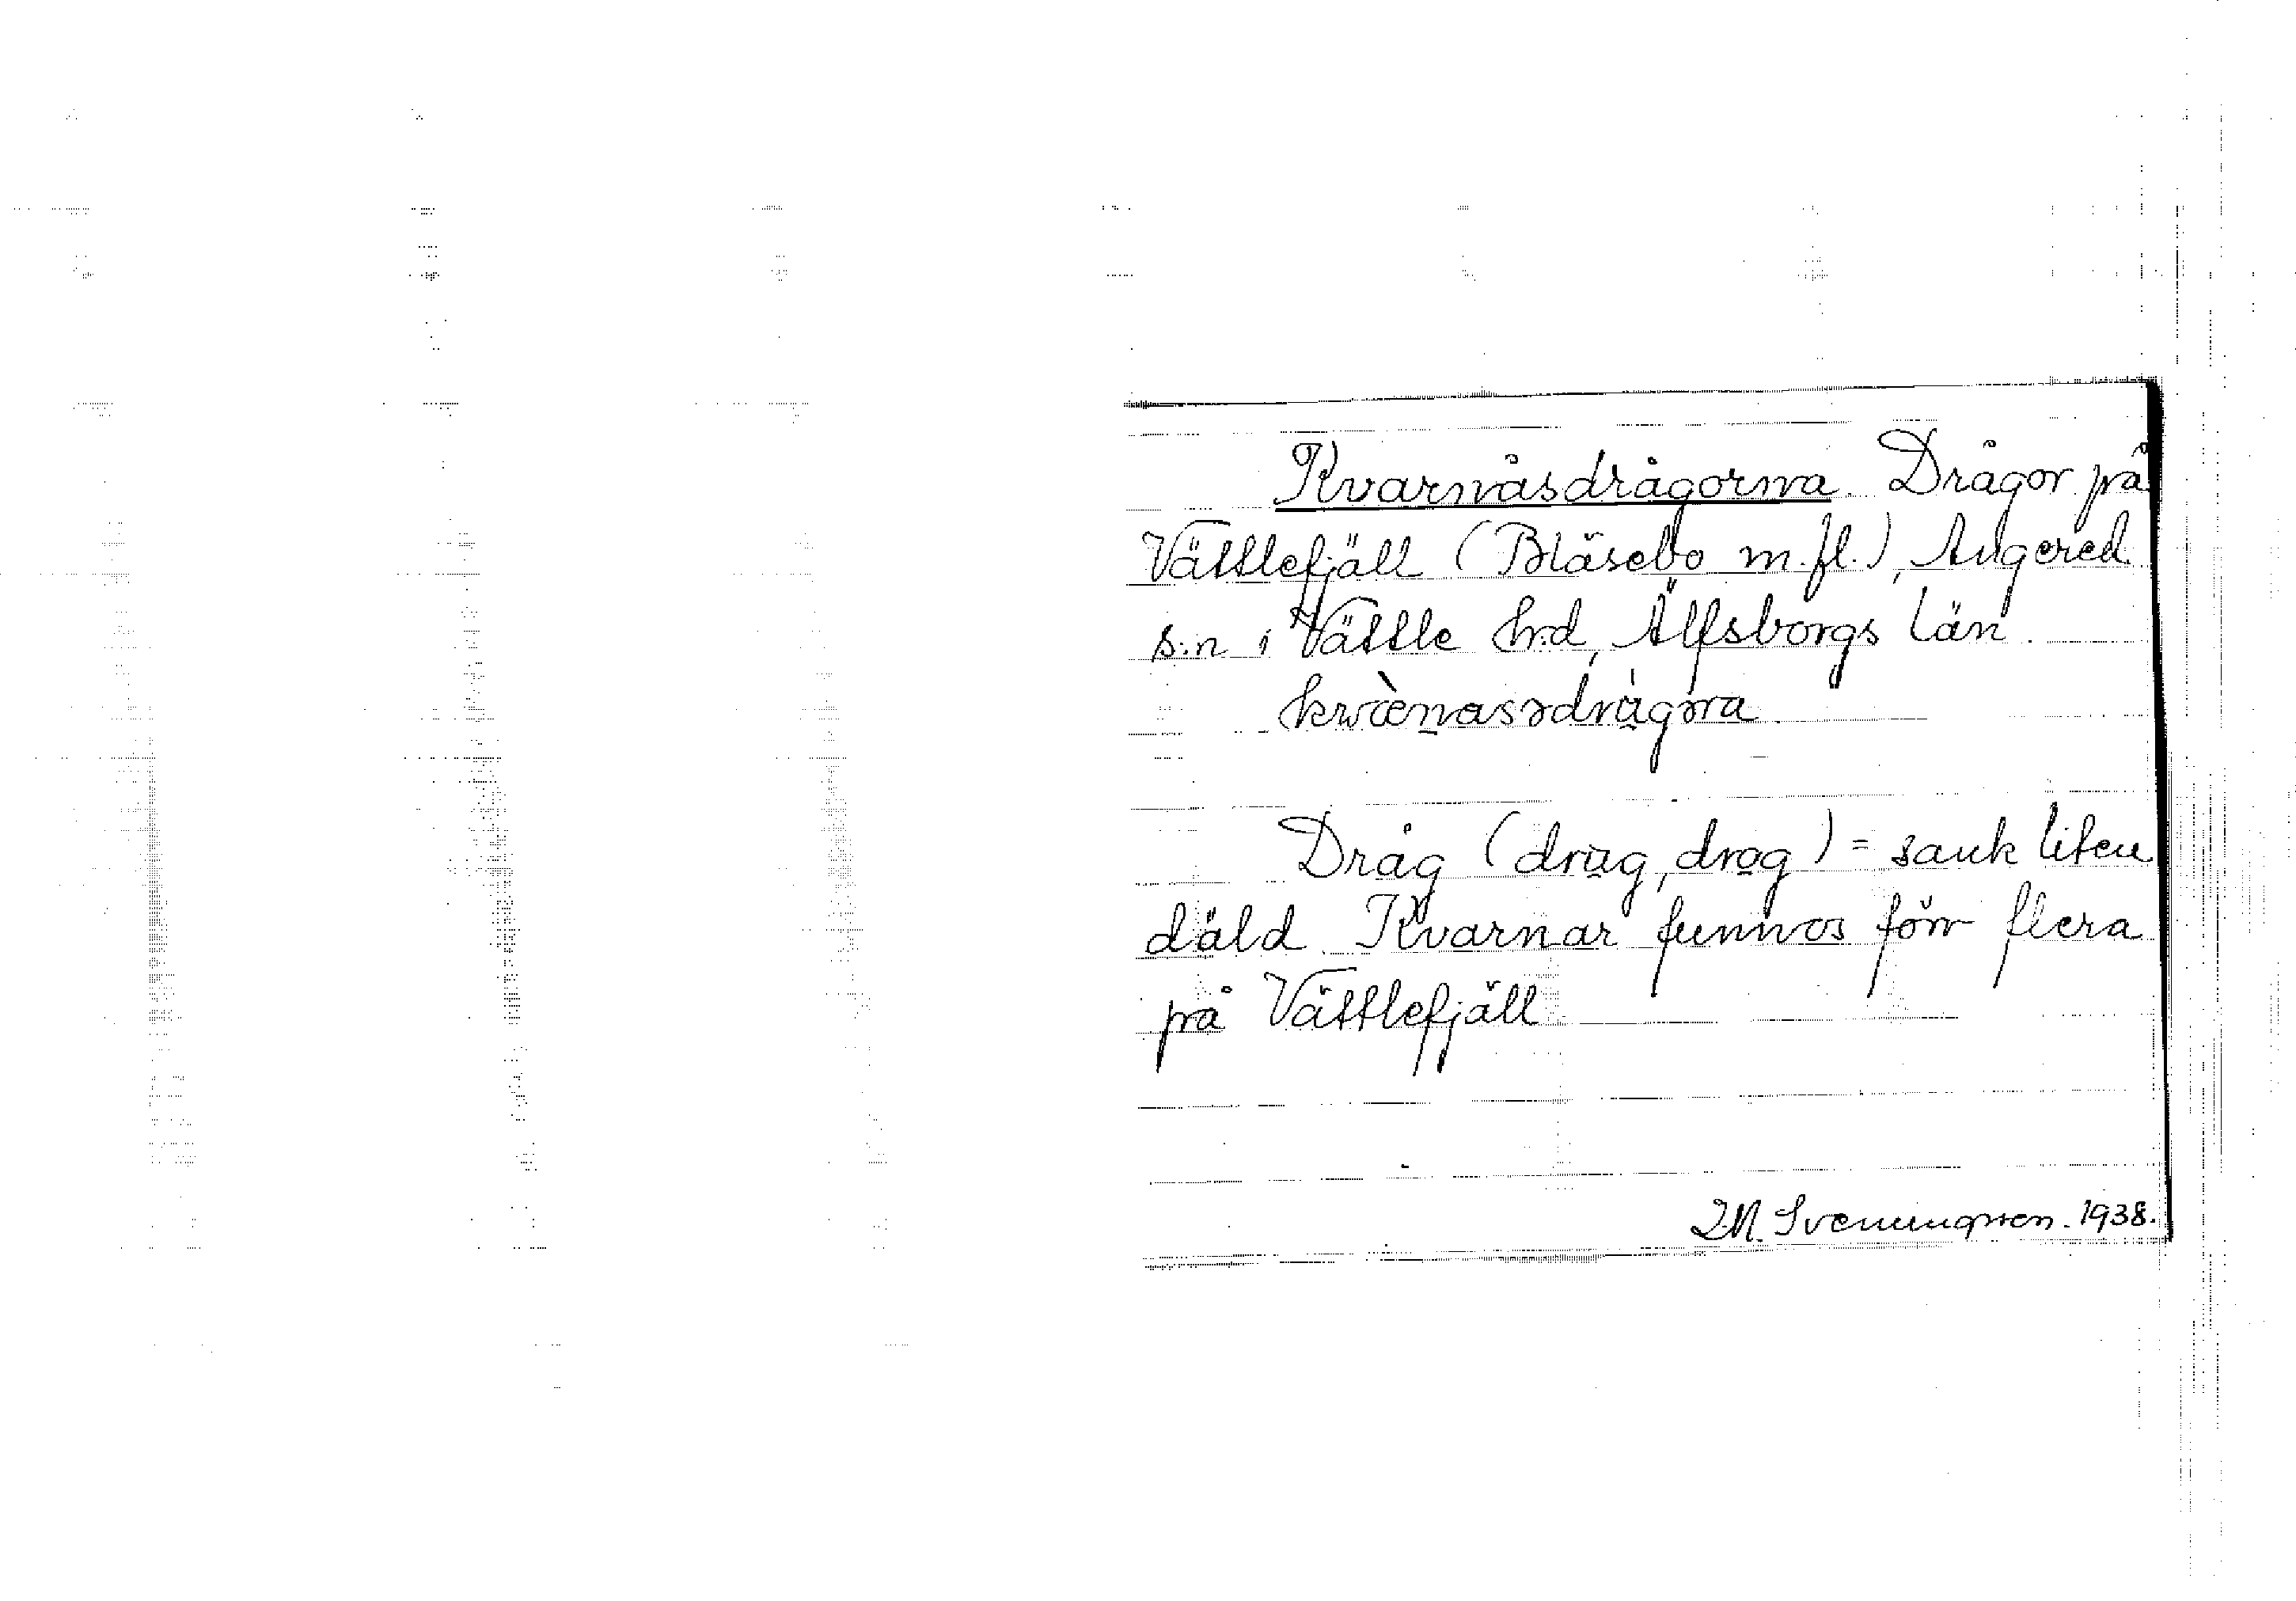 Kvarnåsdrågorna. Drågor på
Vättlefjäll (Bläsebo m.fl.), Angered
s:n i Vättle h:d, Älfsborgs län.
Dråg (drug, drog) = sank liten
däld. Kvarnar funnos förr flera
på Vättlefjäll
I.M. Sveningsson. 1938.